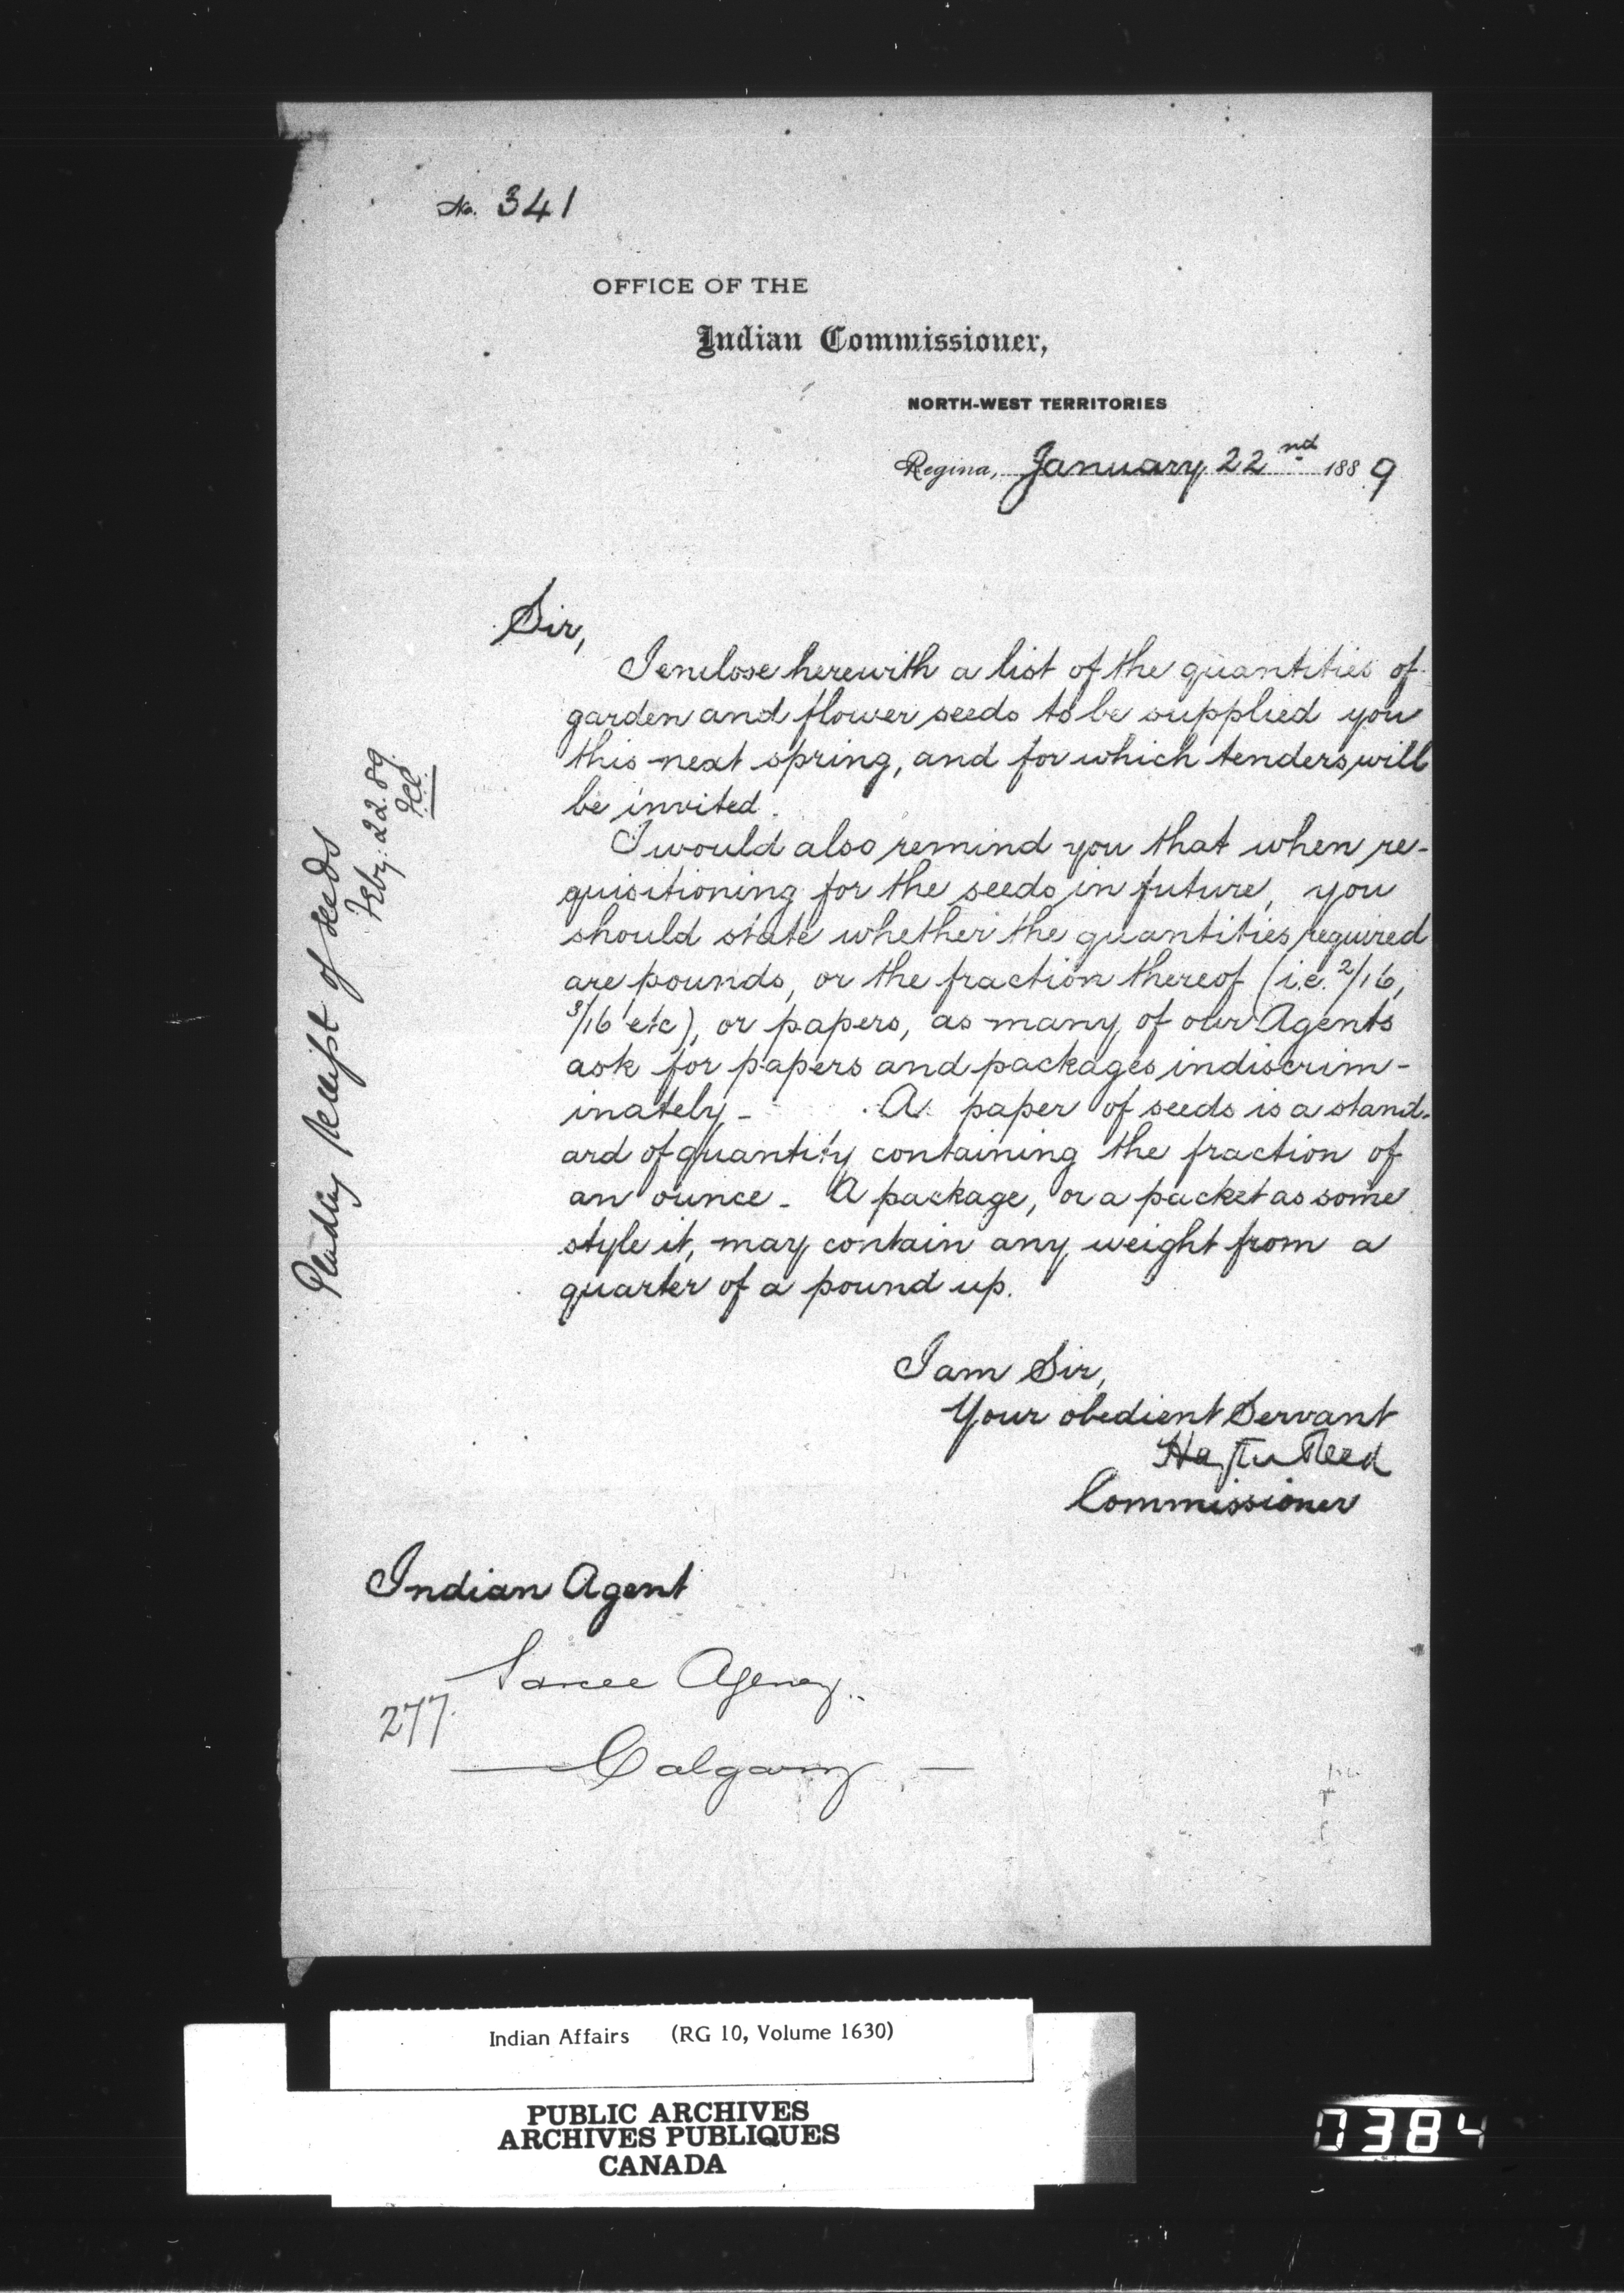 No. 341
OFFICE OF THE
Indian Commissioner,
NORTH-WEST TERRITORIES
Regina, January 22nd 1889
Sir,
I enclose herewith a list of the quantities of
garden and flower seeds to be supplied you
this next spring, and for which tenders will
be invited.
I would also remind you that when re-
quisitioning for the seeds in future, you
should state whether the quantities required
are pounds, or the fraction thereof (i.e. 2/16,
3/16 etc), or papers, as many of our Agents
ask for papers and packages indiscrim-
inately - A paper of seeds is a stand-
ard of quantity containing the fraction of
an ounce - A package, or a packet as some
style it, may contain any weight from a
quarter of a pound up.
I am Sir,
Your obedient Servant
Hayter Reed
Commissioner
Indian Agent
Sarcee Agency
277.
Calgary
receipt of seeds
Feby: 22.89.
Indian Affairs (RG 10, Volume 1630)
PUBLIC ARCHIVES
ARCHIVES PUBLIQUES
CANADA
0384